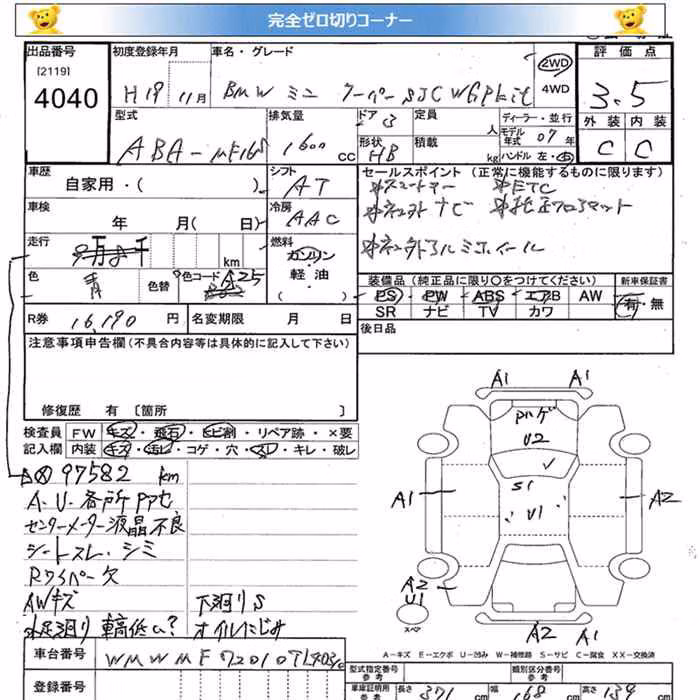 完全ゼロ切りコーナー
出品番号
[2119]
4040
初度登録年月
H19 11月
車名・グレード
BMW ミニ クーパー SJCWGPkit
2WD
4WD
評価点
3.5
外装 内装
C C
型式
ABA-MF16S
排気量
1600 CC
ドア 3
形状 HB
定員 人
積載 kg
ディーラー・並行
モデル年式 07年
ハンドル 左・右
車歴
自家用・( )
シフト
AT
車検
年 月(日)
冷房
AAC
走行
km
燃料
ガソリン
軽・油
( )
色
青
色替
色コード
A25
セールスポイント (正常に機能するものに限ります)
ETC
ナビ
装備品 (純正品に限り○をつけてください)
新車保証書
PS PW ABS エアB AW
SR ナビ TV カワ
有・無
R券 16,190 円
名変期限 月 日
後日品
注意事項申告欄(不具合内容等は具体的に記入して下さい)
修復歴 有 [箇所 ]
検査員 FW キズ・飛石・ヒビ割・リペア跡・×要
記入欄 内装 キズ・汚レ・コゲ・穴・スレ・キレ・破レ
97582 km
A.U.各所
センターメーター液晶不良
シートスレ・シミ
Rワイパー欠
AWキズ
下廻りS
水足廻り車高低い?
オイルにじみ
A1 A1
ハゲ
U2
S1
U1
A1
A2
A2
U1
スペア
A2 A1
A-キズ E-エクボ U-凹み W-補修跡 S-サビ C-腐食 XX-交換済
車台番号
登録番号
型式指定番号
参考
類別区分番号
参考
車庫証明用
参考
長さ 371 cm
幅 168 cm
高さ 139